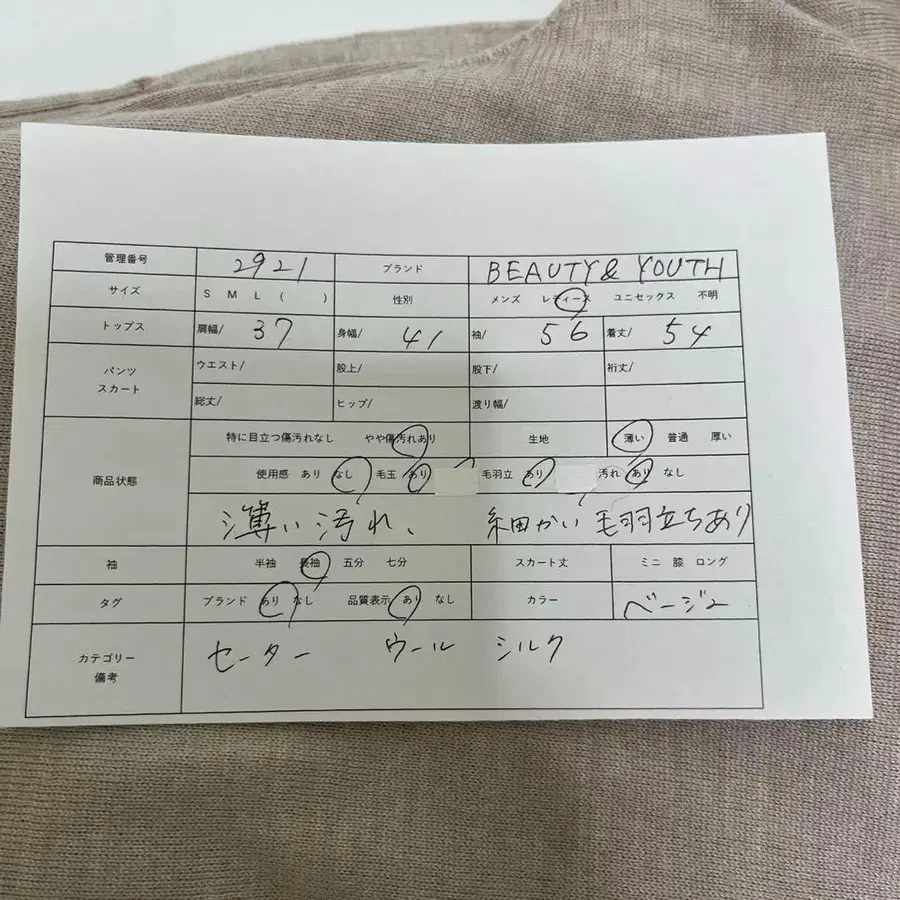 管理番号 2921 ブランド BEAUTY & YOUTH
サイズ S M L ( ) 性別 メンズ レディース ユニセックス 不明
トップス 肩幅/ 37 身幅/ 41 袖/ 56 着丈/ 54
パンツ スカート ウエスト/ 股上/ 股下/ 裄丈/
総丈/ ヒップ/ 渡り幅/
商品状態 特に目立つ傷汚れなし やや傷汚れあり 生地 薄い 普通 厚い
使用感 あり なし 毛玉 あり 毛羽立 あり 汚れ あり なし
薄い汚れ、 細かい毛羽立ちあり
袖 半袖 長袖 五分 七分 スカート丈 ミニ 膝 ロング
タグ ブランド あり なし 品質表示 あり なし カラー ベージュ
カテゴリー 備考 セーター ウール シルク